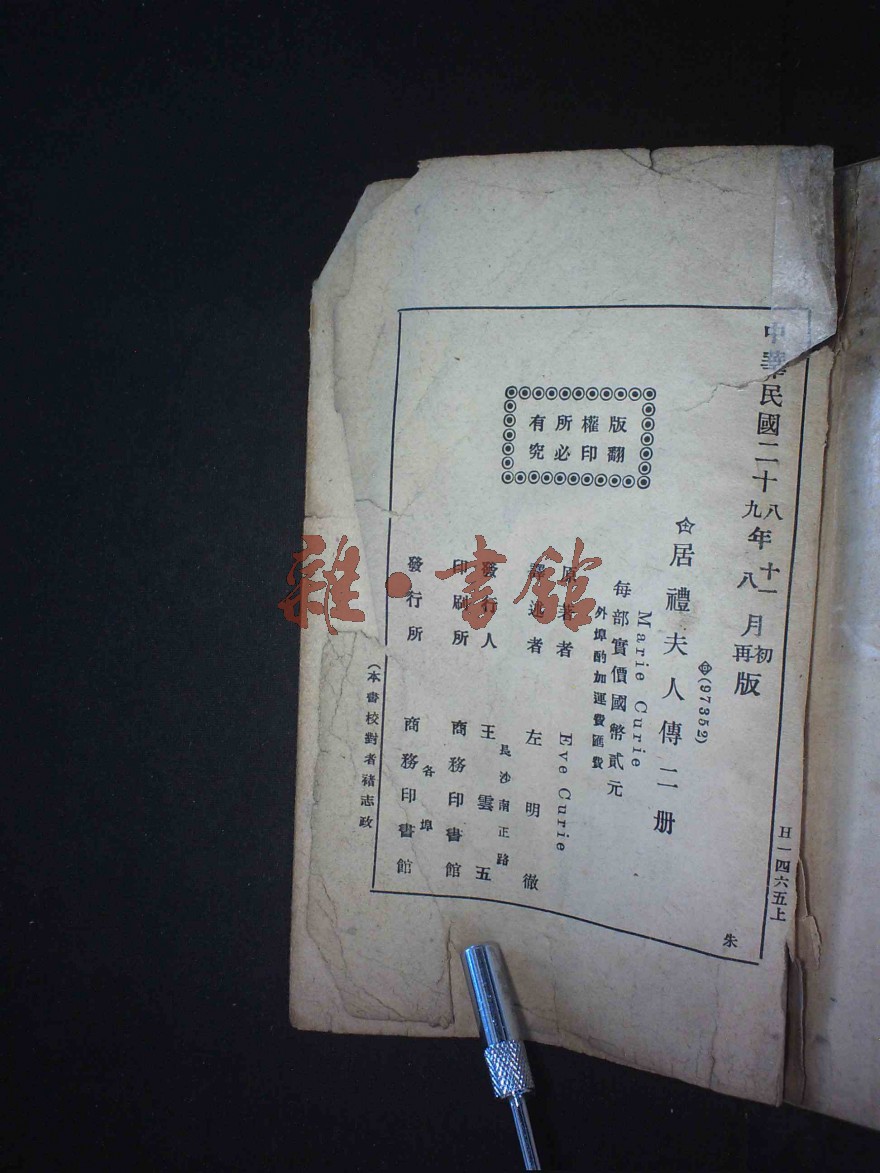 中華民國二十八年十一月初版
九年八月再版
(97352)
居禮夫人傳二册
Marie Curie
每部實價國幣貳元
外埠酌加運費匯費
版權所有
翻印必究
原著者 Eve Curie
譯述者 左明徹
發行人 王雲五
長沙南正路
印刷所 商務印書館
各埠
發行所 商務印書館
(本書校對者褚志政
H一四六五上
朱
雜·書館